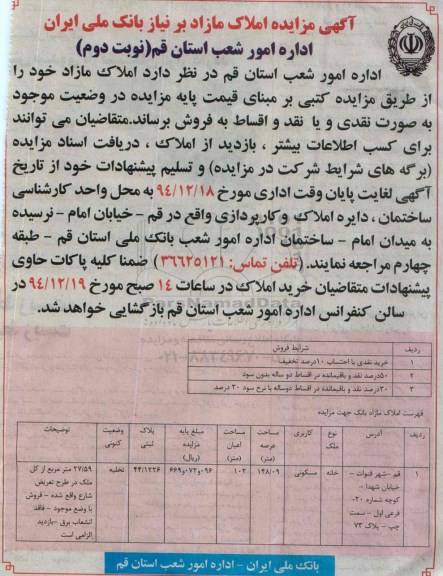 آگهی مزایده املاک مازاد بر نیاز بانک ملی ایران
اداره امور شعب استان قم(نوبت دوم)
اداره امور شعب استان قم در نظر دارد املاک مازاد خود را
از طریق مزایده کتبی بر مبنای قیمت پایه مزایده در وضعیت موجود
به صورت نقدی و یا نقد و اقساط به فروش برساند.متقاضیان می توانند
برای کسب اطلاعات بیشتر ، بازدید از املاک ، دریافت اسناد مزایده
(برگه های شرایط شرکت در مزایده) و تسلیم پیشنهادات خود از تاریخ
آگهی لغایت پایان وقت اداری مورخ ۹۴/۱۲/۱۸ به محل واحد کارشناسی
ساختمان ، دایره املاک و کارپردازی واقع در قم - خیابان امام - نرسیده
به میدان امام - ساختمان اداره امور شعب بانک ملی استان قم - طبقه
چهارم مراجعه نمایند.(تلفن تماس: ۳۶۶۲۵۱۲۱) ضمنا کلیه پاکات حاوی
پیشنهادات متقاضیان خرید املاک در ساعات ۱۴ صبح مورخ ۹۴/۱۲/۱۹ در
سالن کنفرانس اداره امور شعب استان قم بازگشایی خواهد شد.
ردیف شرایط فروش
۱ خرید نقدی با احتساب ۱۰درصد تخفیف
۲ ۵۰درصد نقد و باقیمانده در اقساط دو ساله بدون سود
۳ ۳۰درصد نقد و باقیمانده در اقساط دوساله با نرخ سود ۲۰ درصد
فهرست املاک مازاد بانک جهت مزایده
ردیف آدرس نوع ملک کاربری مساحت عرصه (متر) مساحت اعیان (متر) مبلغ پایه مزایده (ریال) پلاک ثبتی وضعیت کنونی توضیحات
۱ قم -شهر قنوات - خانه مسکونی ۱۴۸/۰۹ ۱۰۲ ۶۶۹،۰۷۲،۰۹۶ ۴۴/۱۲۲۶ تخلیه ۲۷/۵۹ متر مربع از کل
خیابان شهدا - ملک در طرح تعریض
کوچه شماره ۲۰- شارع واقع شده - فروش
فرعی اول - سمت با وضع موجود - فاقد
چپ - پلاک ۷۳ انشعاب برق -بازدید
الزامی است
بانک ملی ایران - اداره امور شعب استان قم